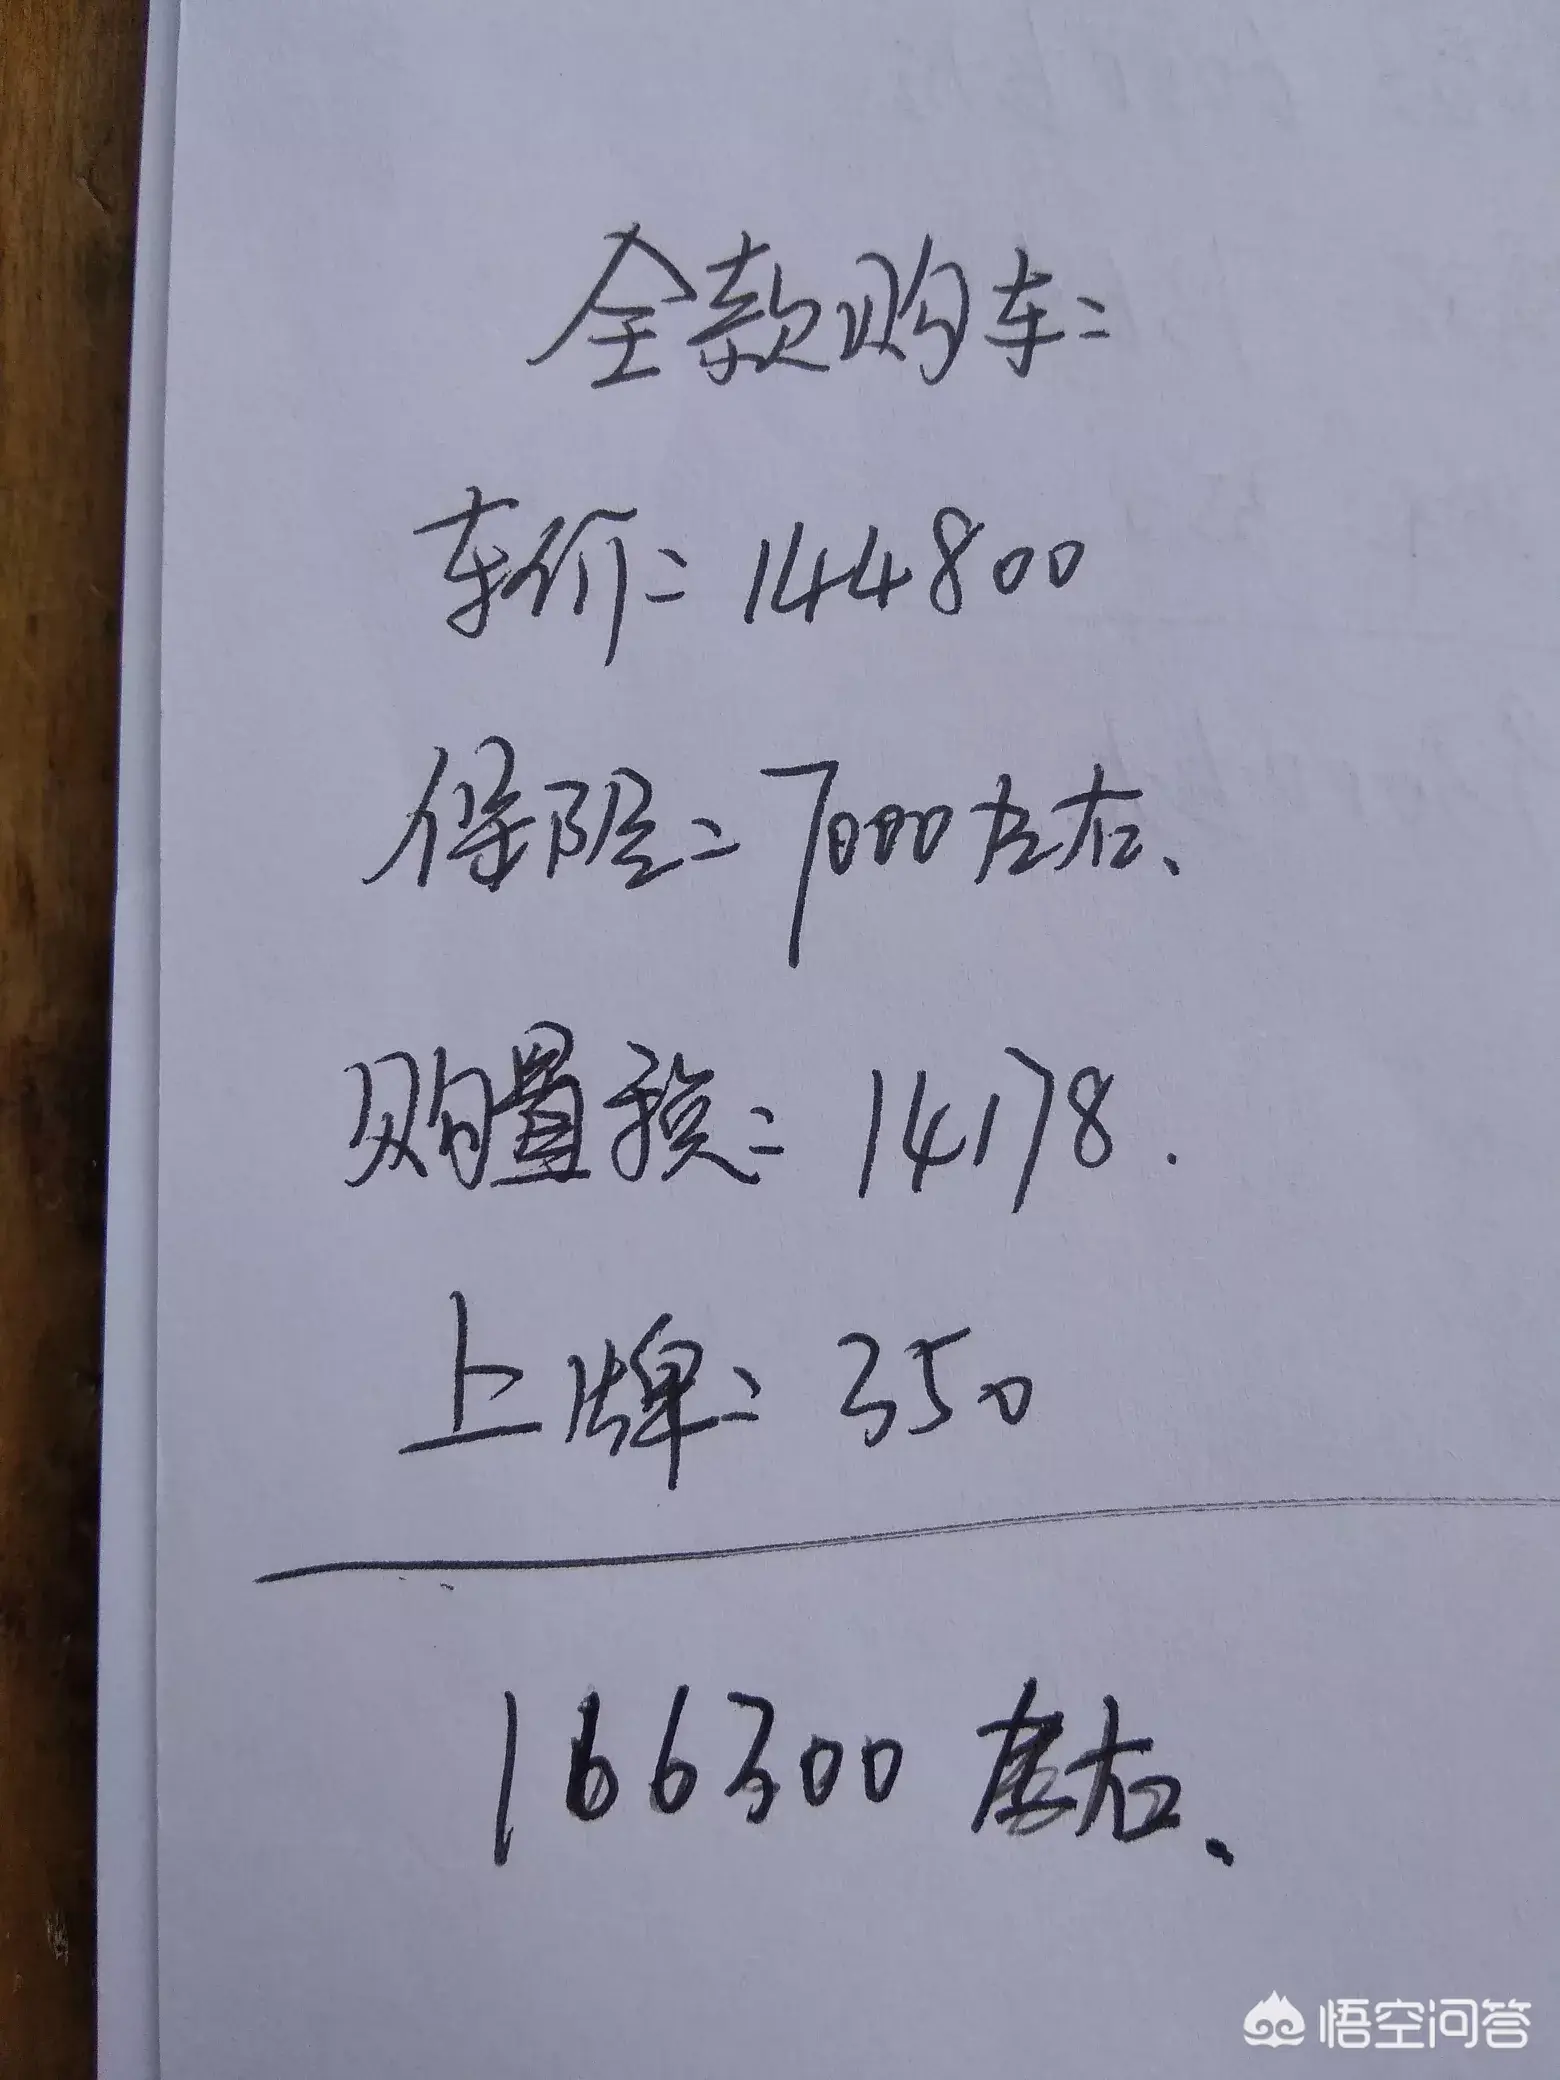 全款购车：
车价：144800
保险：7000左右、
购置税：14178.
上牌：350
166300左右、
悟空问答